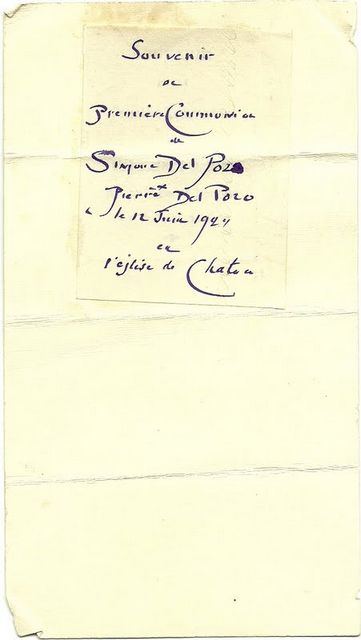 Souvenir
de
Première Communion
de
Simone Del Pozo
et
Pierre Del Pozo
le 12 Juin 192
en
l'église de Chatou